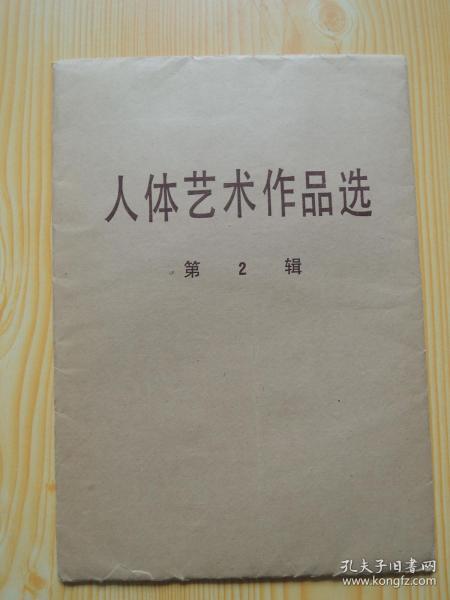 人体艺术作品选
第 2 辑
孔夫子旧书网
www.kongfz.com